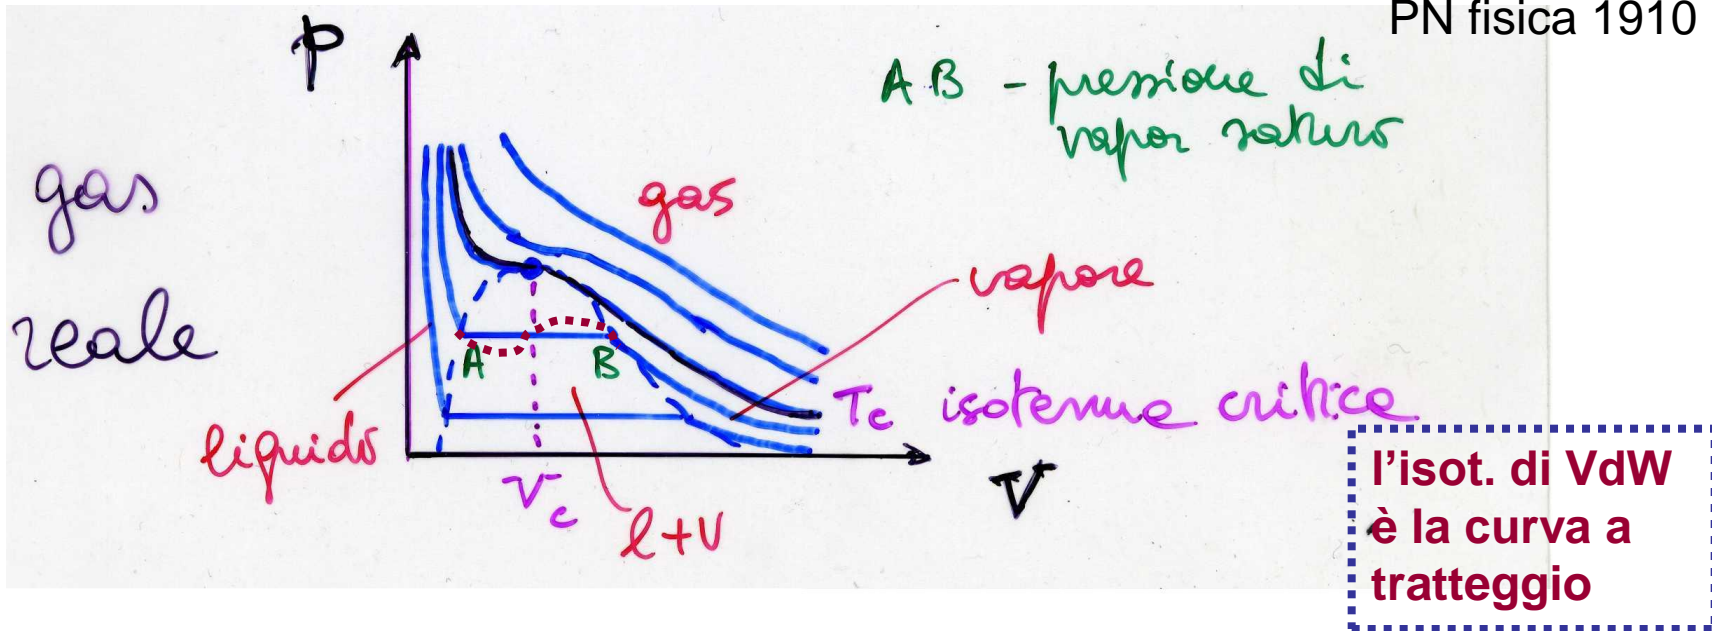 PN fisica 1910
p
AB - pressione di
vapor saturo
gas
reale
gas
vapore
A
B
Tc isoterma critica
liquido
Vc
l+V
V
l’isot. di VdW
è la curva a
tratteggio